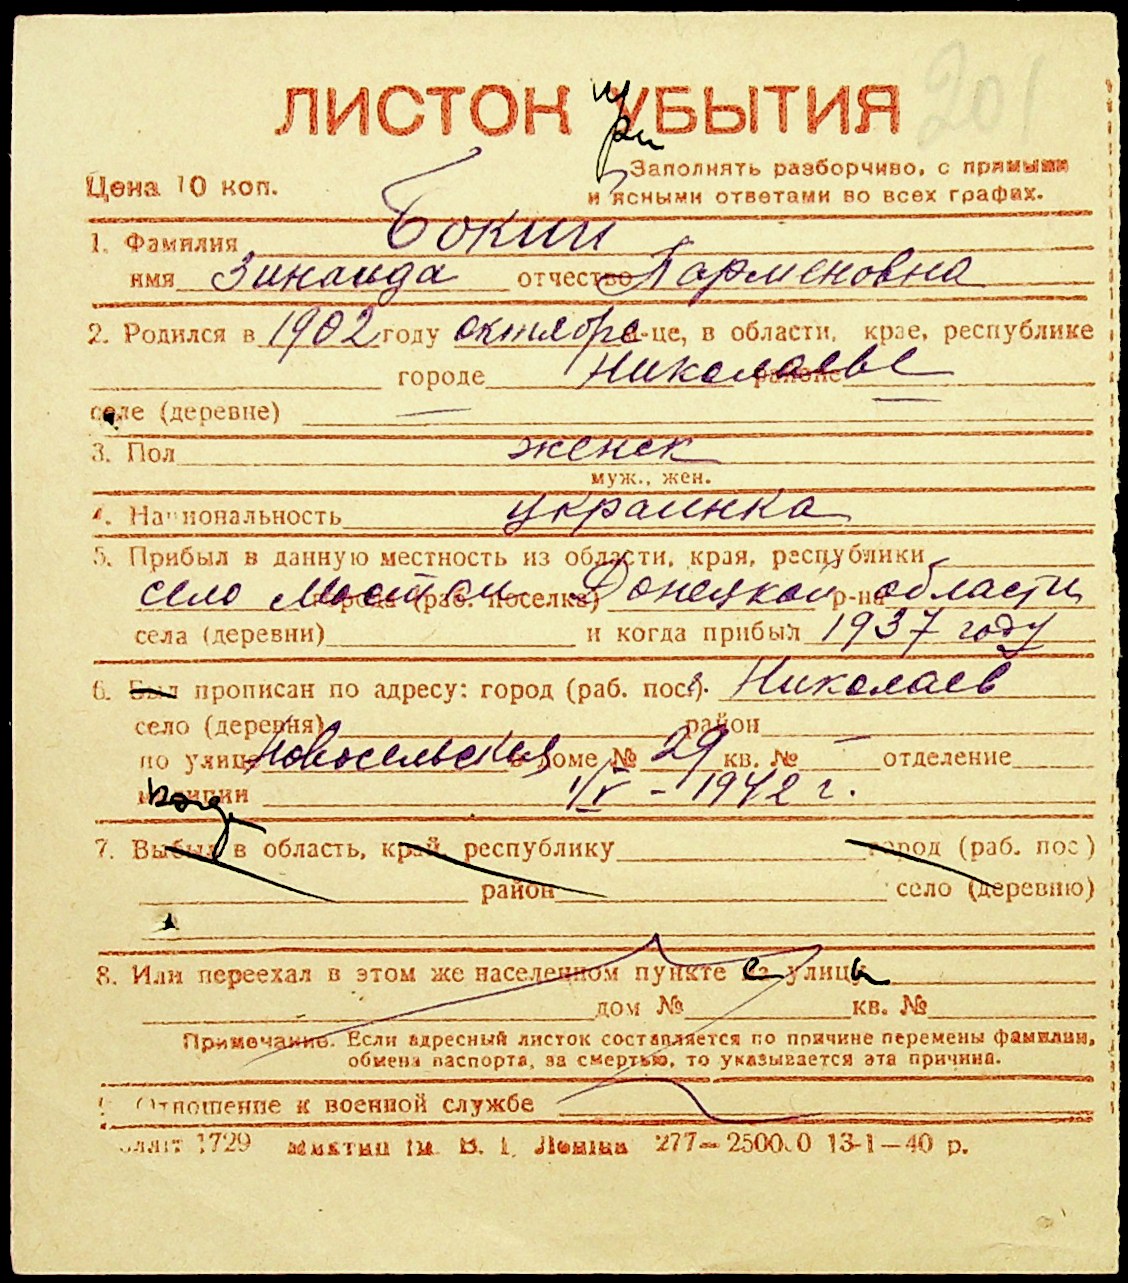 201
ЛИСТОК УБЫТИЯ
при
Цена 10 коп.
Заполнять разборчиво, с прямыми
и ясными ответами во всех графах.
1. Фамилия Бокии
имя Зинаида отчество Парменовна
2. Родился в 1902 году октябре м-це, в области, крае, республике
городе Николаеве районе
селе (деревне) —
3. Пол женск
муж., жен.
4. Национальность украинка
5. Прибыл в данную местность из области, края, республики
село Мостки Донецкой области
города (раб. поселка) р-на
села (деревни) и когда прибыл 1937 году
6. Был прописан по адресу: город (раб. пос.). Николаев
село (деревня) район
по улице Новосельская в доме № 29 кв. № — отделение
милиции 1/V – 1942 г.
когда
7. Выбыл в область, край, республику город (раб. пос)
район село (деревню)
8. Или переехал в этом же населенном пункте с улицы
дом № кв. №
Примечание. Если адресный листок составляется по причине перемены фамилии,
обмена паспорта, за смертью, то указывается эта причина.
9. Отношение к военной службе
1729 277—2500.0 13-1—40 р.